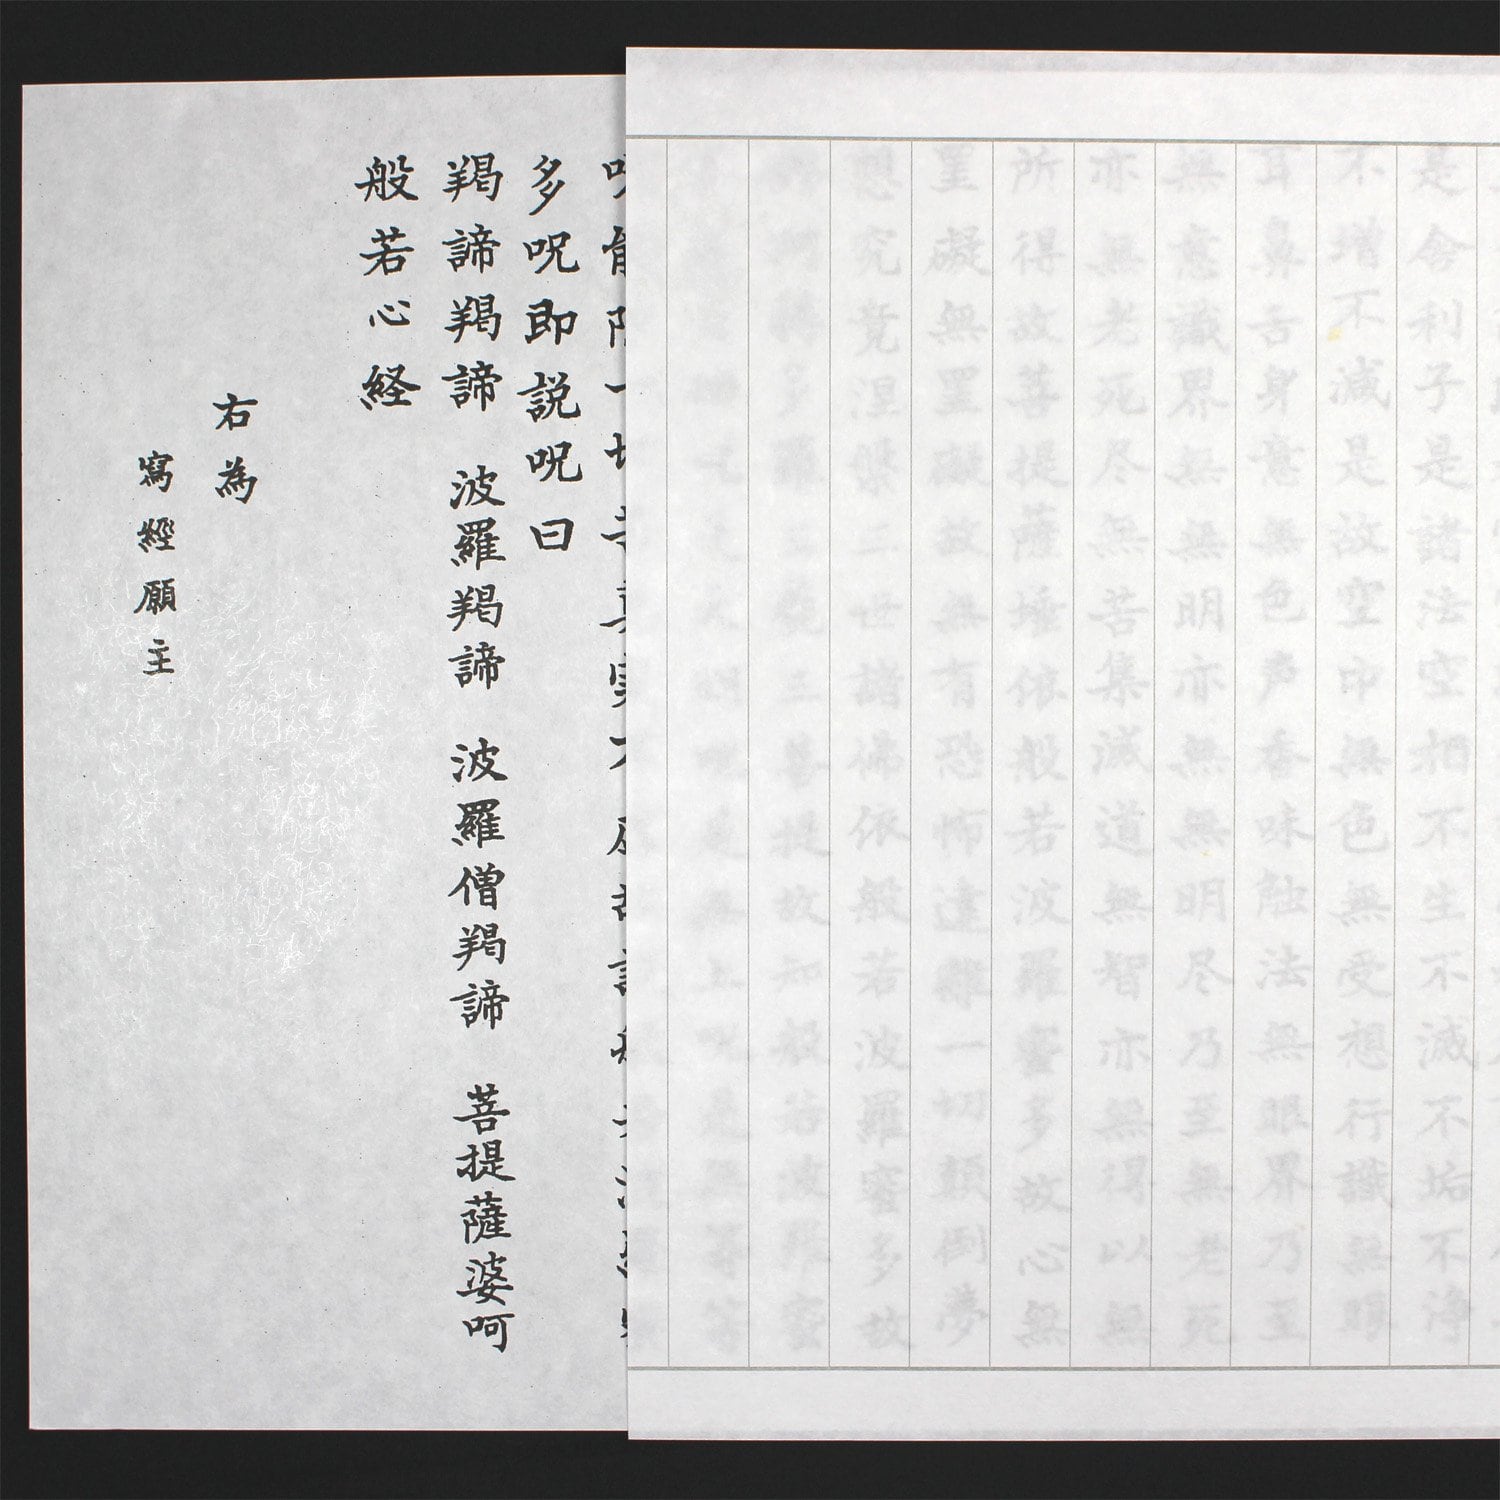 是舍利子是諸法空相不生不滅不垢不浄
不増不減是故空中無色無受想行識無眼
耳鼻舌身意無色声香味触法無眼界乃至
無意識界無無明亦無無明尽乃至無老死
亦無老死尽無苦集滅道無智亦無得以無
所得故菩提薩埵依般若波羅蜜多故心無
罣礙無罣礙故無有恐怖遠離一切顛倒夢
想究竟涅槃三世諸佛依般若波羅蜜多故
耨多羅三藐三菩提故知般若波羅蜜
大明呪是無上呪是無等等
能除一切苦真実不虚故説般若波羅蜜
多呪即説呪曰
羯諦羯諦 波羅羯諦 波羅僧羯諦 菩提薩婆呵
般若心経
右為
寫經願主